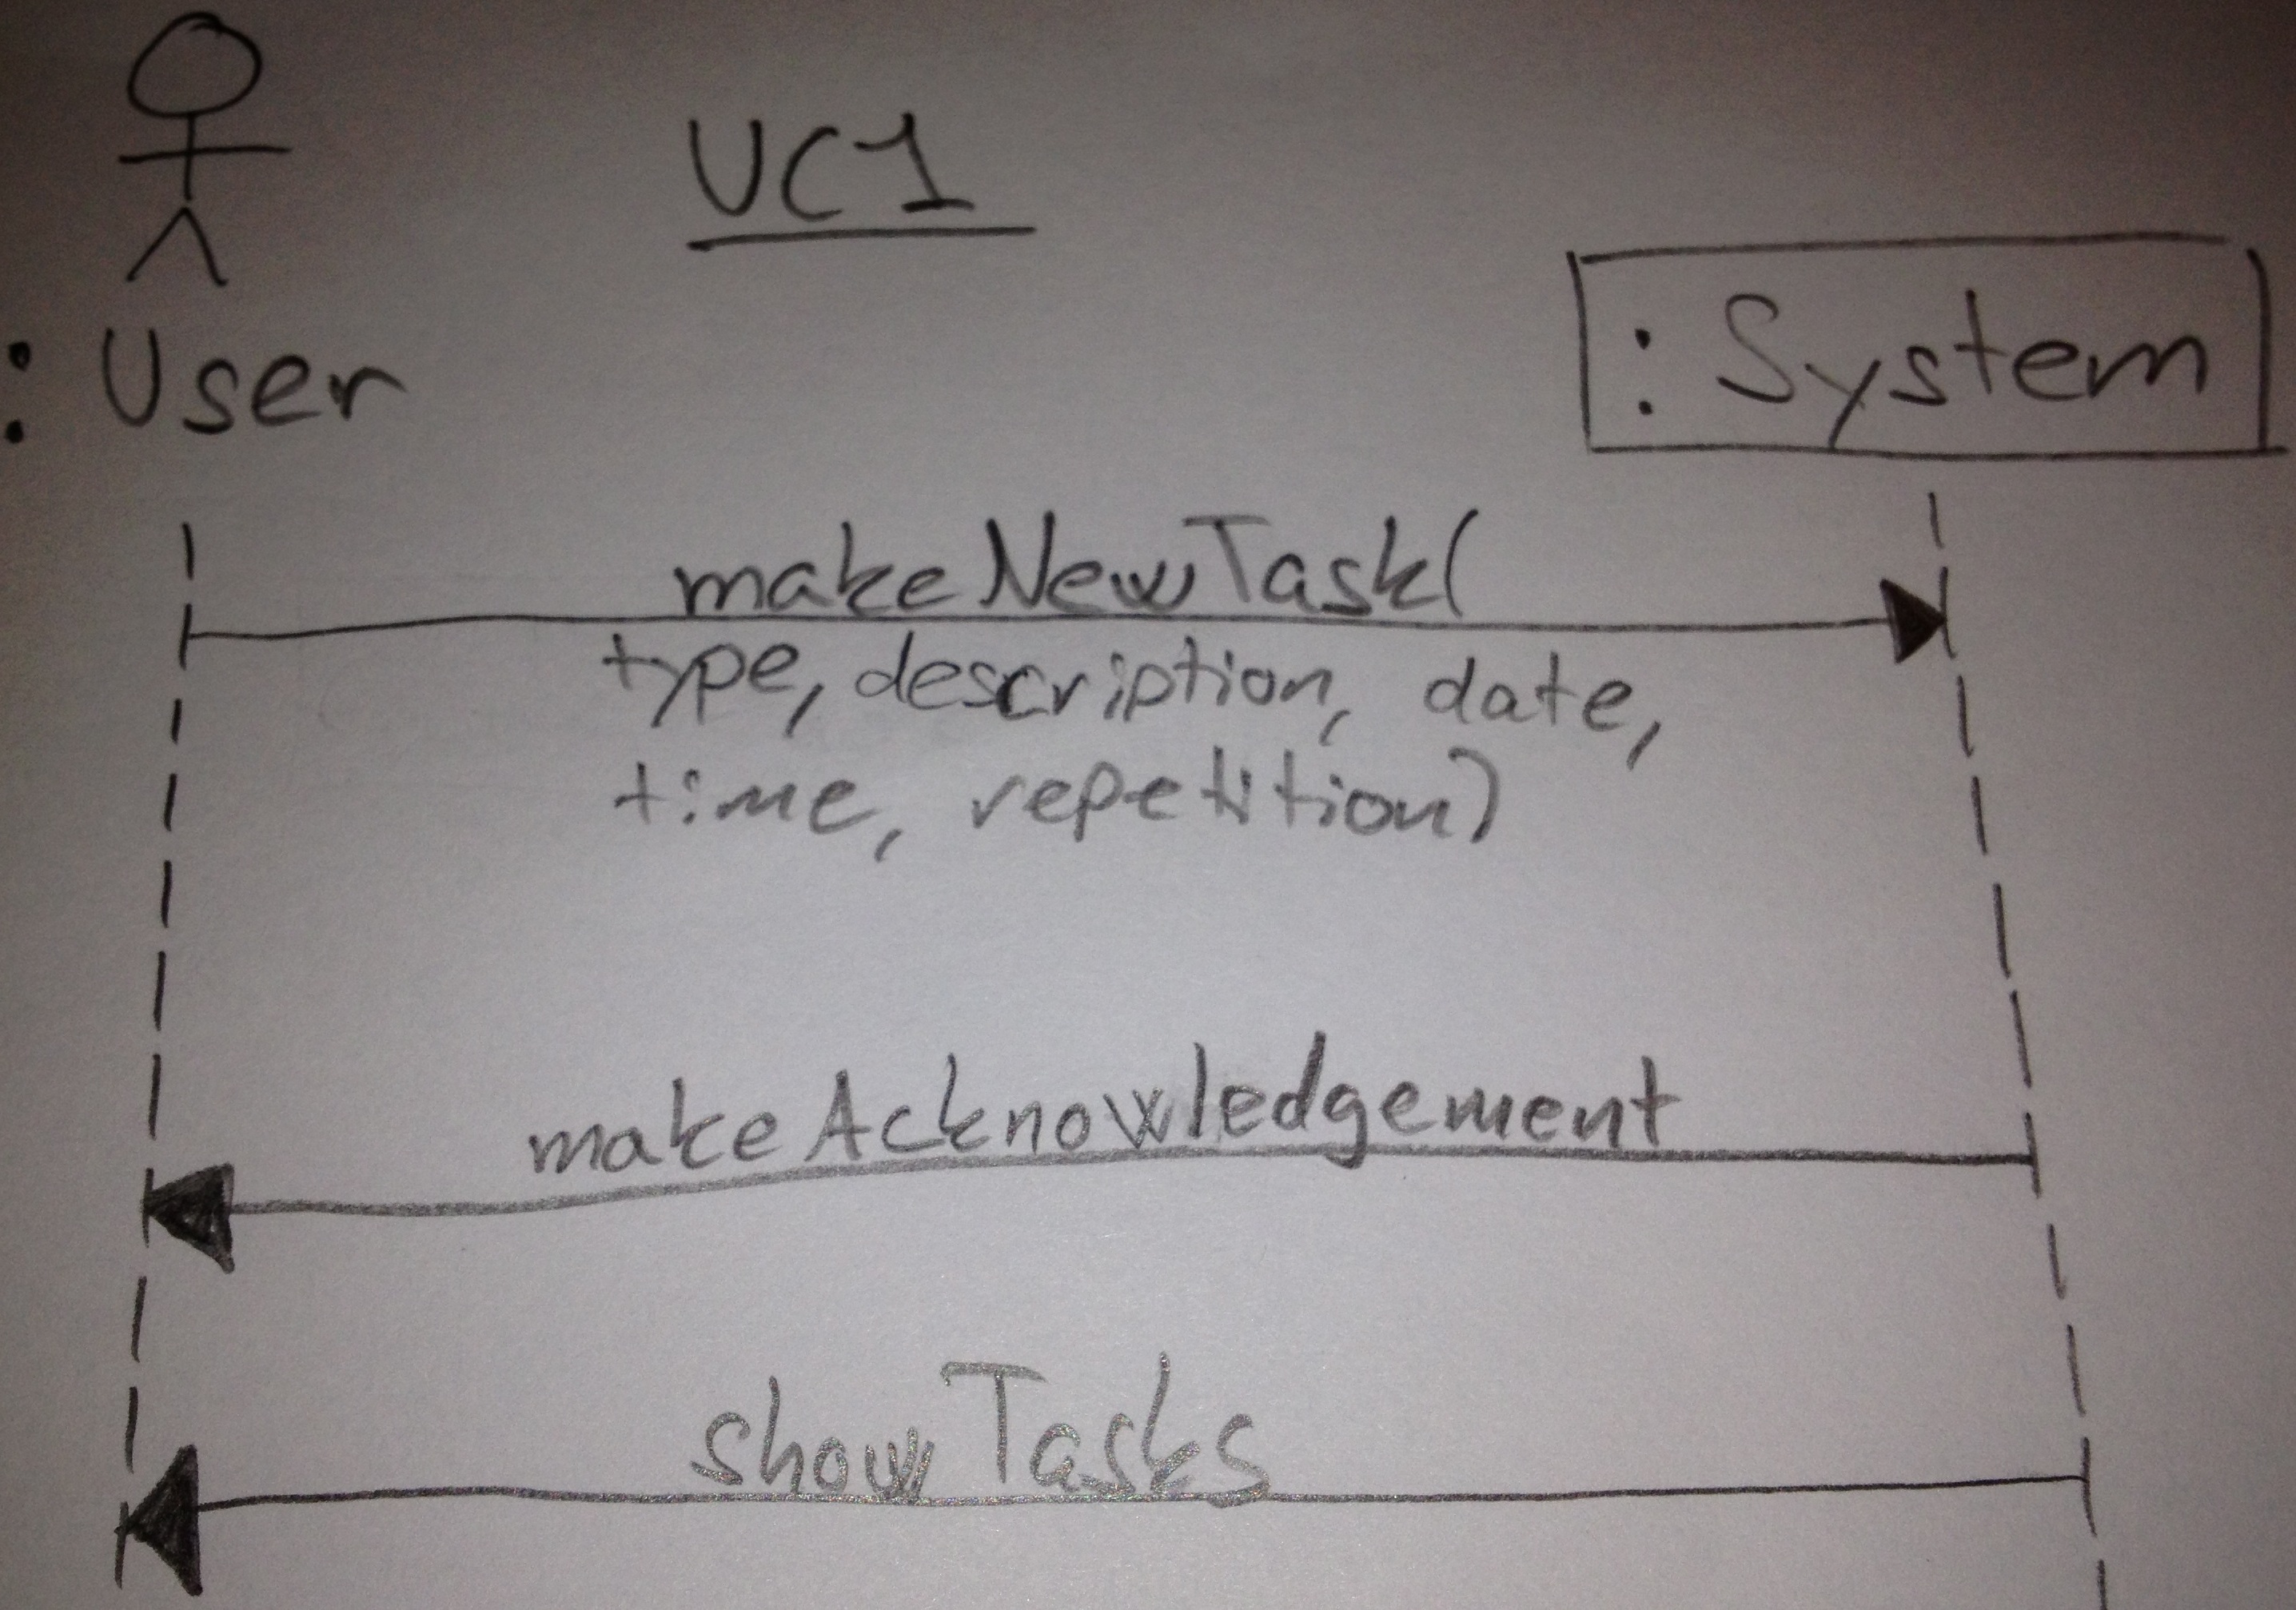 UC1
: User
: System
makeNewTask(
type, description, date,
time, repetition)
makeAcknowledgement
showTasks